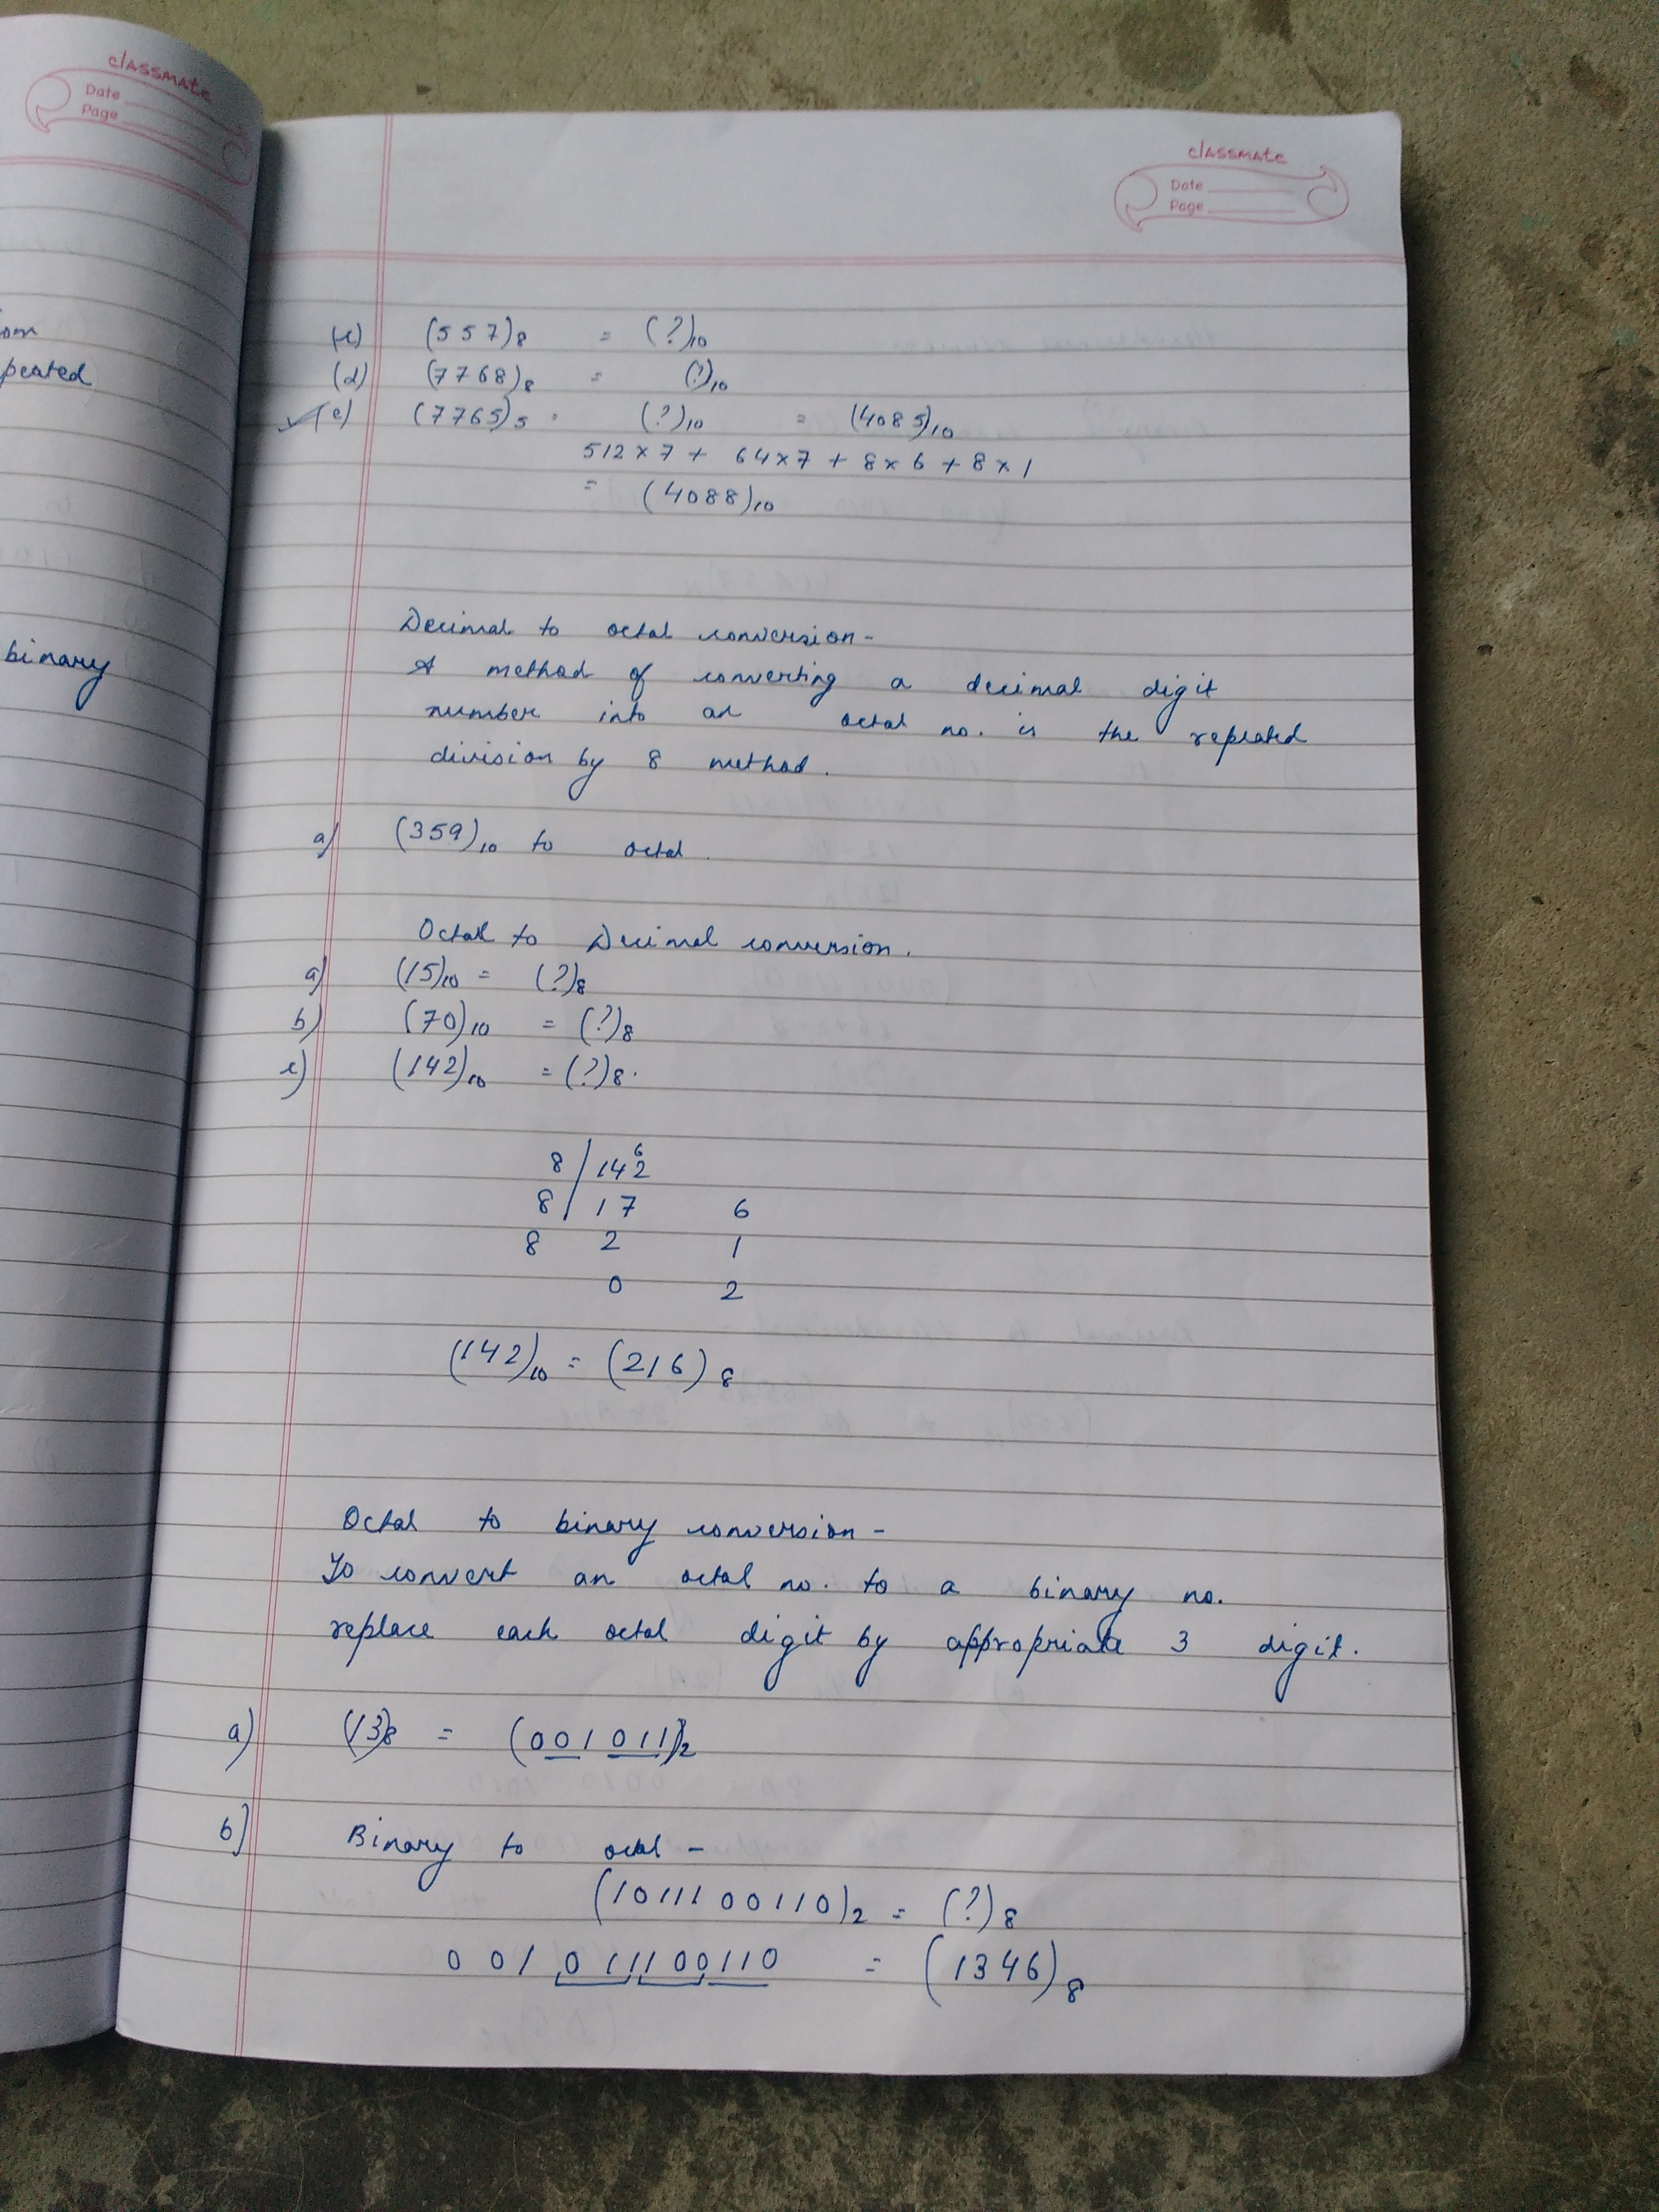 classmate
Date
Page
om
peated
binary
classmate
Date
Page
(c) (557)8 = (?)10
(d) (7768)8 = (?)10
(e) (7765)5 = (?)10 = (4085)10
512 x 7 + 64x7 + 8x6 + 8x1
= (4088)10
Decimal to octal conversion-
A method of converting a decimal digit
number into an octal no. is the repeated
division by 8 method.
a) (359)10 to octal.
Octal to Decimal conversion.
a) (15)10 = (?)8
b) (70)10 = (?)8
c) (142)10 = (?)8.
6
8 142
8 17 6
8 2 1
0 2
(142)10 = (216)8
Octal to binary conversion-
To convert an octal no. to a binary no.
replace each octal digit by appropriate 3 digit.
a) (13)8 = (001011)2
b) Binary to octal -
(1011100110)2 = (?)8
001011100110 = (1346)8